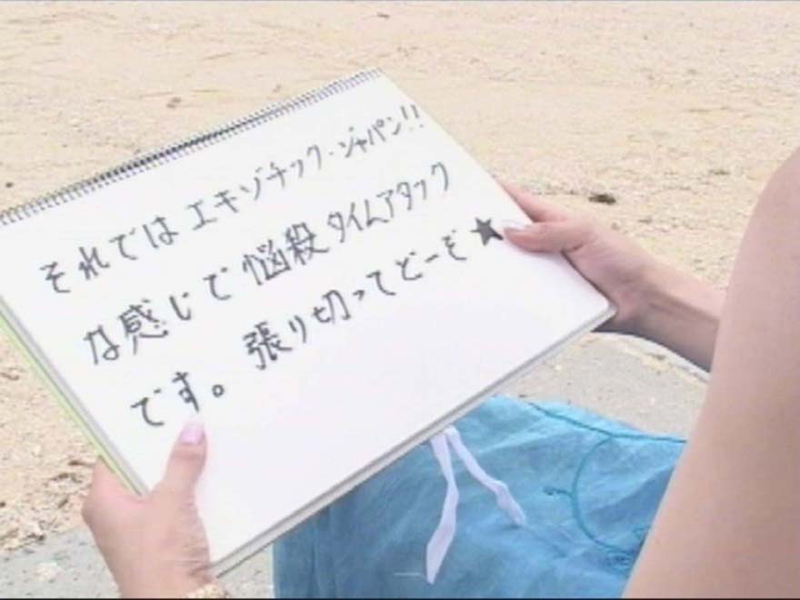 それでは エキゾチック・ジャパン!!
な感じで 悩殺 タイムアタック
です。張り切ってどーぞ★